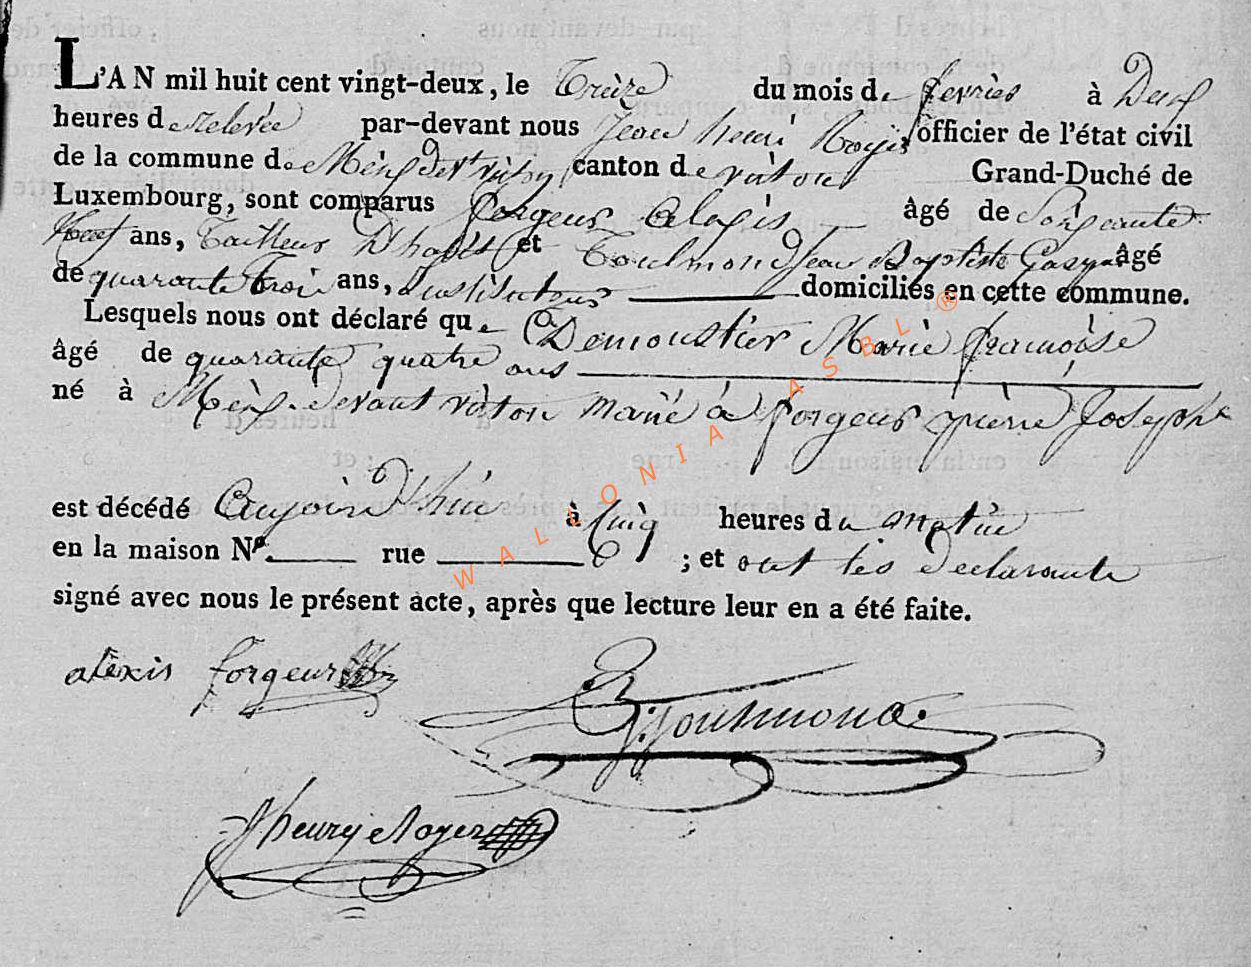 L'AN mil huit cent vingt-deux, le Treize du mois de fevrièr à Deux
heures de relevée par-devant nous Jean henri Royer officier de l'état civil
de la commune de Mèix devt virton, canton de virton Grand-Duché de
Luxembourg, sont comparus forgeur Alexis âgé de Soixante
Neuf ans, Tailleur D'habit et Toulmond Jean Baptiste Gaspar âgé
de quarante Troi ans, instituteur domiciliés en cette commune.
Lesquels nous ont déclaré que Demoustier Marie françoise
âgé de quarante quatre ans
né à Mèix devant virton marié à forgeur pierre Joseph
est décédé Aujourd'hui à Cinq heures du matin
en la maison N°. rue ; et ont les Declarants
signé avec nous le présent acte, après que lecture leur en a été faite.
alexis forgeur
J. Toulmond
J henry Royer
WALLONIA ASBL ®